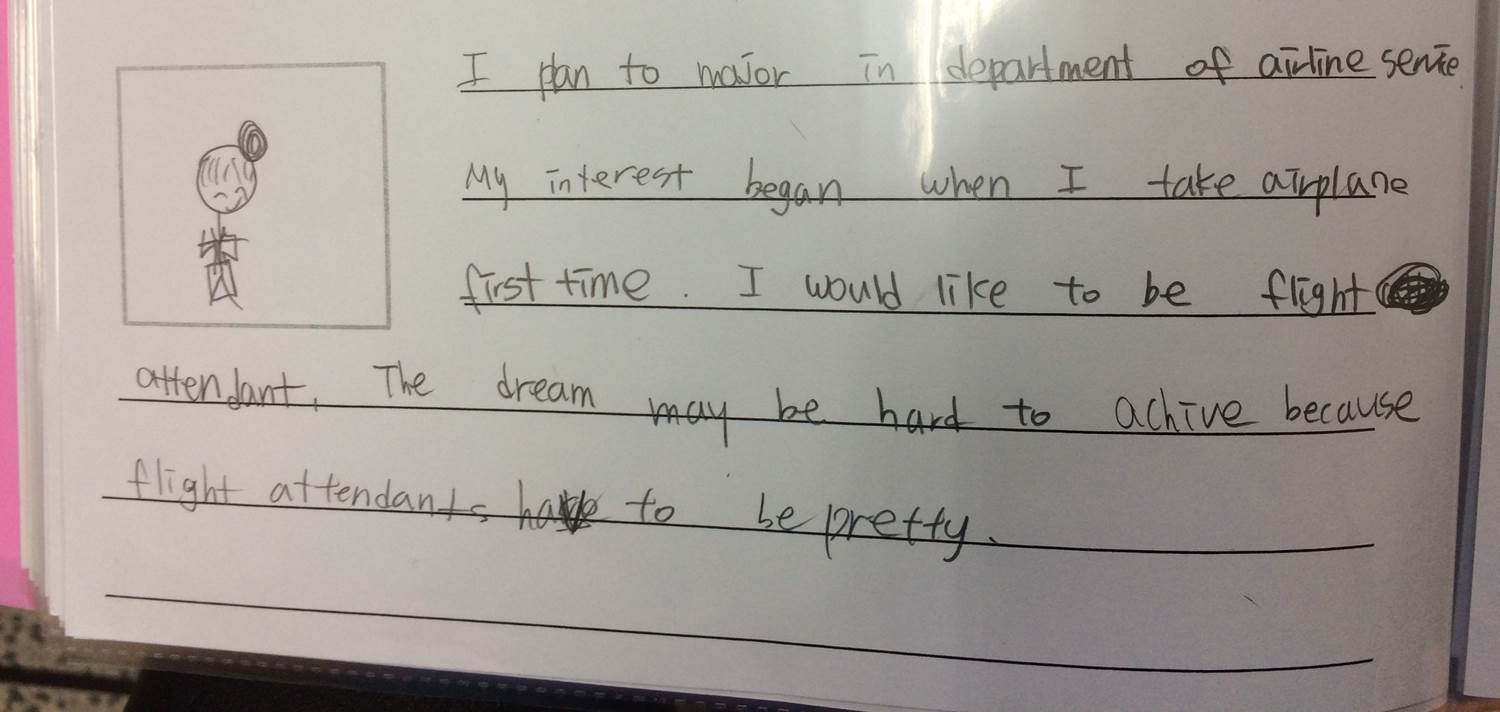 I plan to major in department of airline servie.
My interest began when I take airplane
first time. I would like to be flight
attendant. The dream may be hard to achive because
flight attendants have to be pretty.